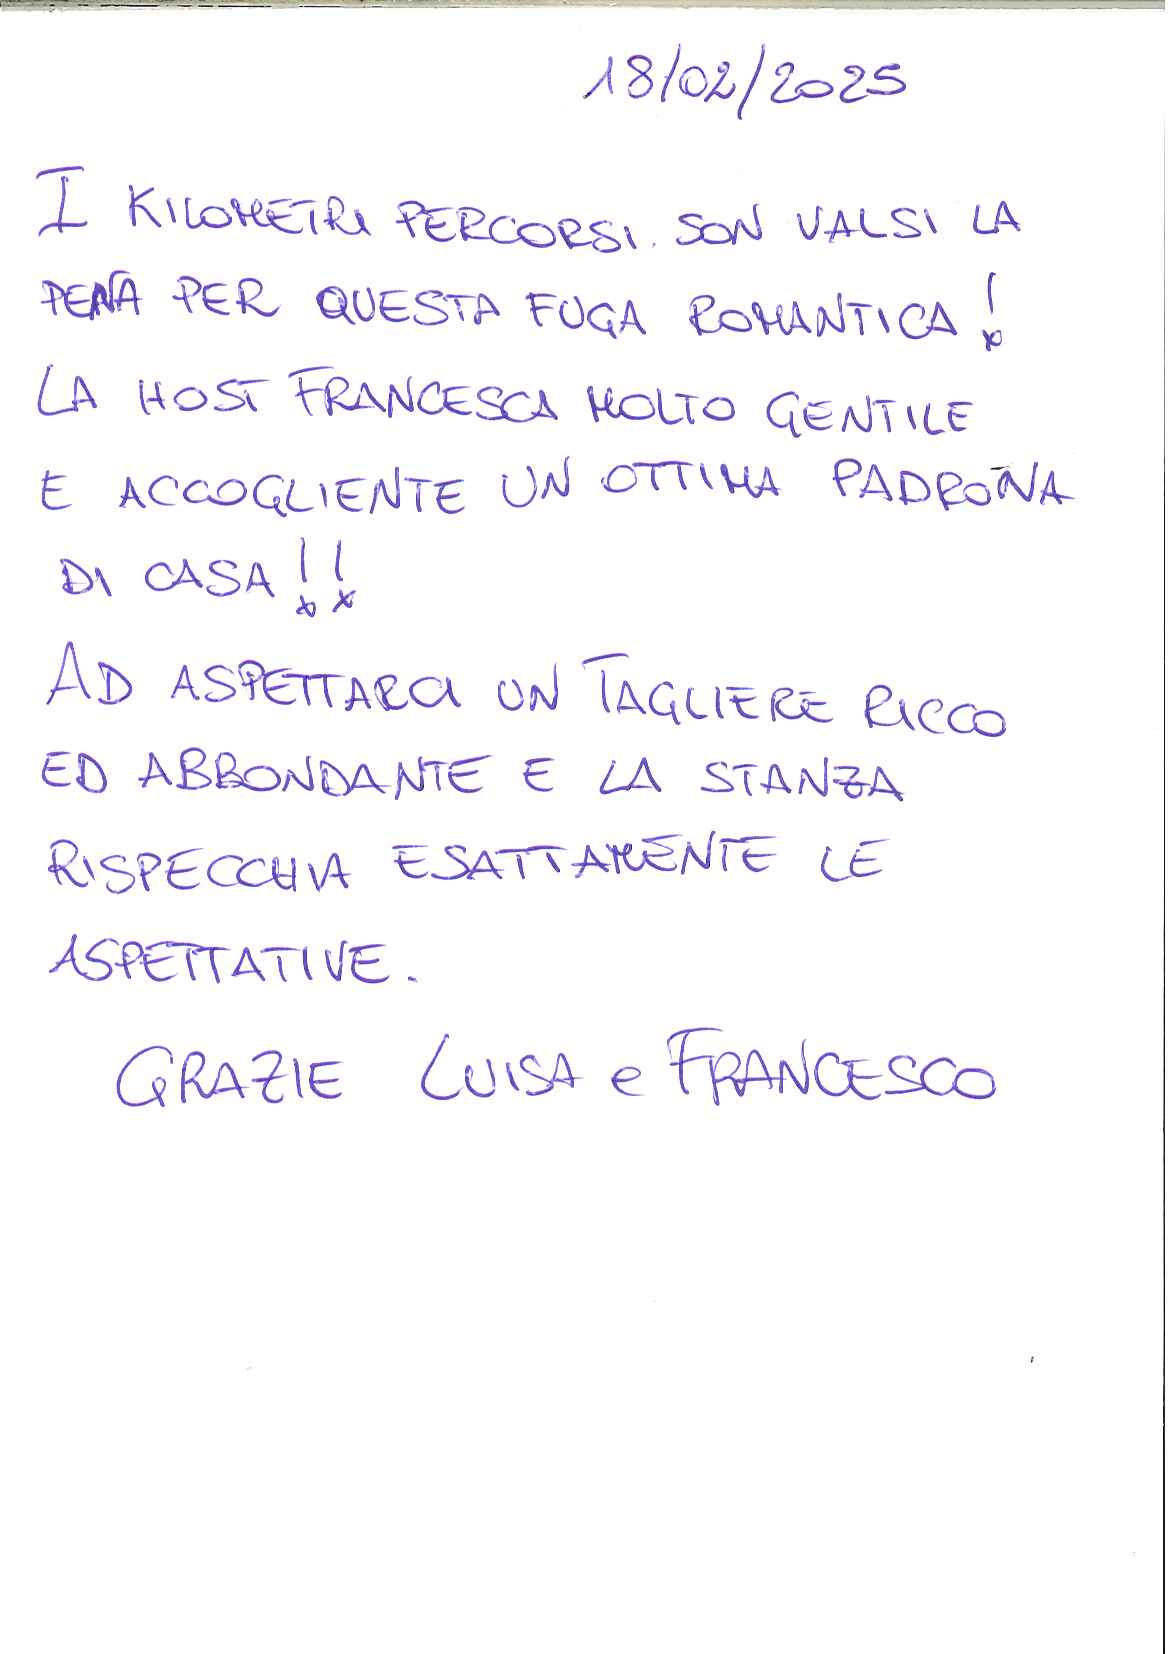 18/02/2025
I KILOMETRI PERCORSI SON VALSI LA
PENA PER QUESTA FUGA ROMANTICA!
LA HOST FRANCESCA MOLTO GENTILE
E ACCOGLIENTE UN OTTIMA PADRONA
DI CASA!!
AD ASPETTARCI UN TAGLIERE RICCO
ED ABBONDANTE E LA STANZA
RISPECCHIA ESATTAMENTE LE
ASPETTATIVE.
GRAZIE LUISA e FRANCESCO